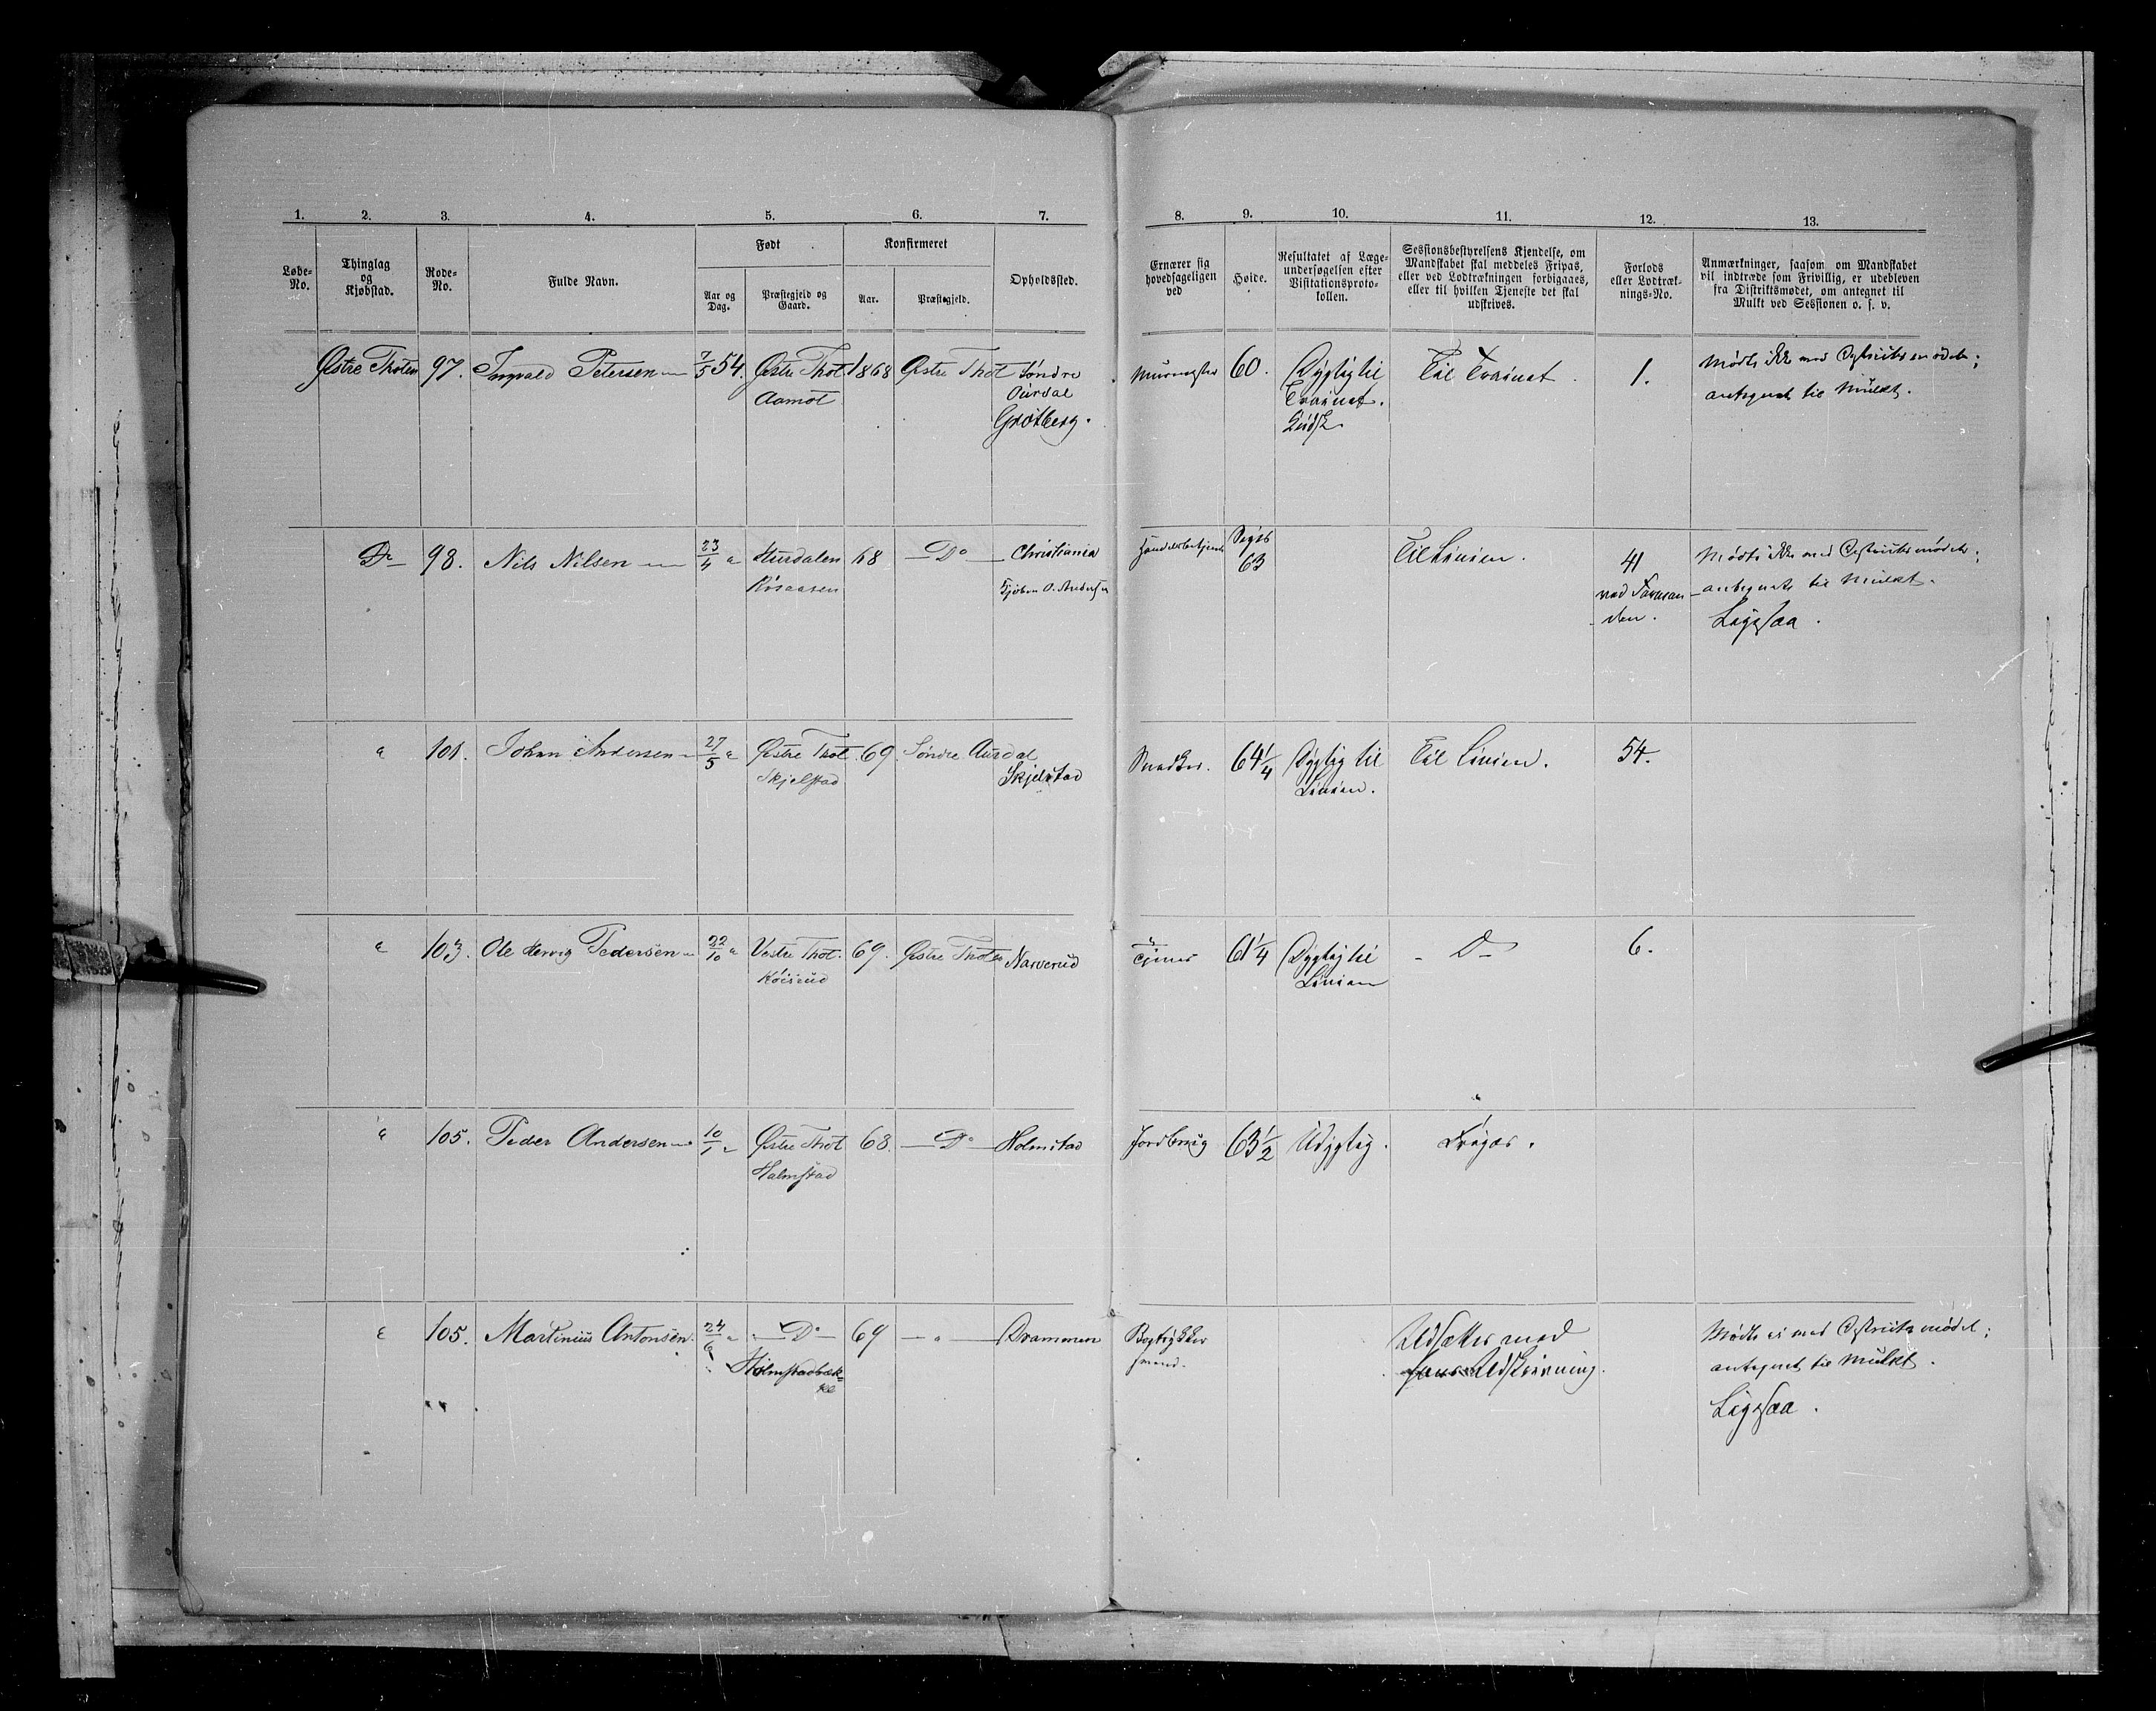 1. 2. 3. 4. 5. 6. 7. 8. 9. 10. 11. 12. 13.
Løbe-No.
Thinglag og Kjøbstad.
Rode-No.
Fulde Navn.
Født
Aar og Dag.
Præstegjeld og Gaard.
Konfirmeret
Aar.
Præstegjeld.
Opholdssted.
Ernærer sig hovedsageligen ved
Høide.
Resultatet af Lægeundersøgelsen efter Visitationsprotokollen.
Sessionsbestyrelsens Kjendelse, om Mandskabet skal meddeles Fripas, eller ved Lodtrækningen forbigaaes, eller til hvilken Tjeneste det skal udskrives.
Forlods eller Lodtræknings-No.
Anmærkninger, saasom om Mandskabet vil indtræde som Frivillig, er udebleven fra Distriktsmødet, om antegnet til Mulkt ved Sessionen o. s. v.
Østre Thoten 97. Ingvald Petersen 7/5 54. Østre Thot 1868 Østre Thot Søndre Murmester 60. Dygtig til Til Trainet. 1. Mødte ikke med Distriktsmødet;
Aamot Aurdal Trainet. antegnet til Mulkt.
Grøtberg.
Do 98. Nils Nilsen 23/4 " Hurdalen 68 Do Christiania Handelsbetjent 63 Til Linien. 41 Mødte ikke med Distriktsmødet;
Røsaasen Kjøbm. O. Andersen ved Formanden. antegnet til Mulkt.
Ligesaa.
" 101. Johan Andersen 27/5 " Østre Thot. 69. Søndre Aurdal Snedker. 64 1/4 Dygtig til Til Linien. 54.
Skjelstad Skjelstad Linien.
" 103. Ole Hervig Pedersen 22/10 " Vestre Thot. 69. Østre Thoten Narverud Tjener 61 1/4 Dygtig til Do 6.
Linien
" 105. Peder Andersen 10/1 " Østre Thot 68. Do Holmstad Jordbrug 63 1/2 Udygtig. Fripas.
Holmstad
" 105. Martinius Antonsen. 24/6 " Do 69 " Drammen Bogtrykker Udsættes med Mødte ei med Distriktsmødet;
Holmstadbække svend. Udskrivning. antegnet til Mulkt.
Ligesaa.